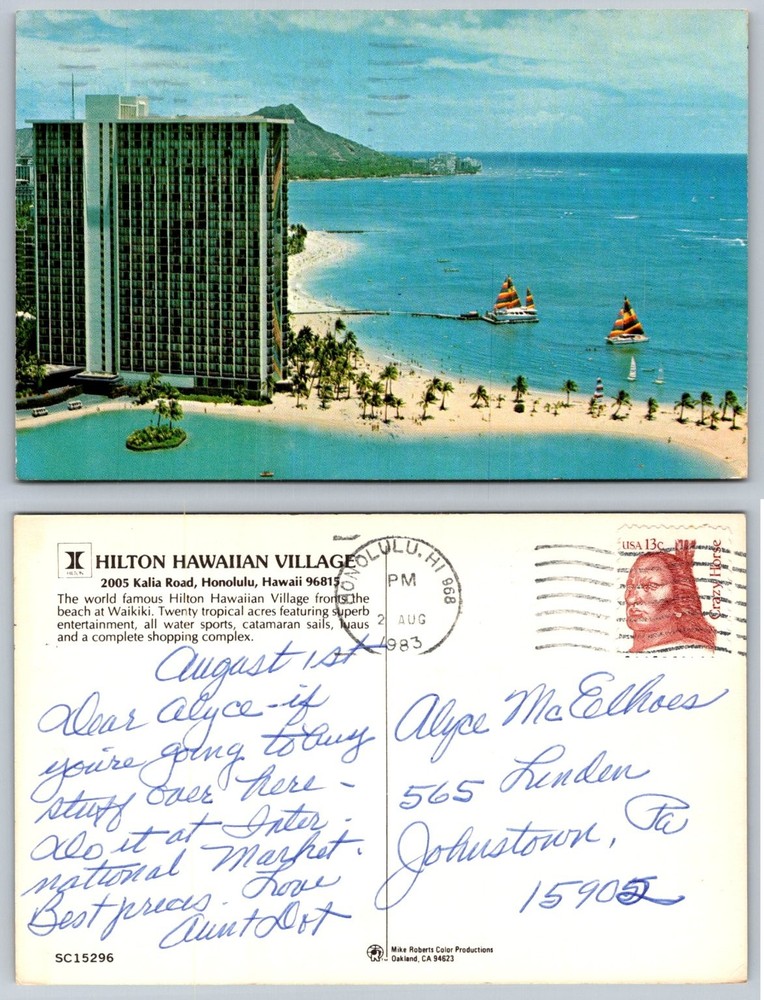 HILTON HAWAIIAN VILLAGE
2005 Kalia Road, Honolulu, Hawaii 96815
The world famous Hilton Hawaiian Village fronts the
beach at Waikiki. Twenty tropical acres featuring superb
entertainment, all water sports, catamaran sails, luaus
and a complete shopping complex.
HONOLULU, HI 968
PM
2 AUG
1983
USA 13c
Crazy Horse
August 1st
Dear Alyce - if
you're going to buy
stuff over here -
do it at Inter-
national Market.
Best prices. Love
Aunt Dot
Alyce McElhoes
565 Linden
Johnstown, Pa
15905
SC15296
Mike Roberts Color Productions
Oakland, CA 94623